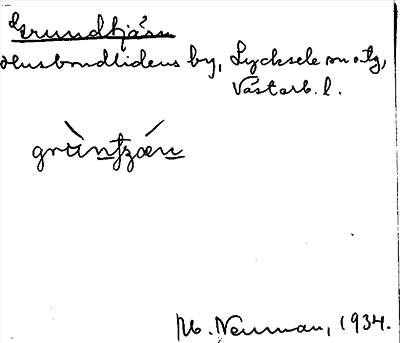 Grundtjärn
Husbondlidens by, Lycksele sn o tg,
Västerb. l.
M. Neuman, 1934.